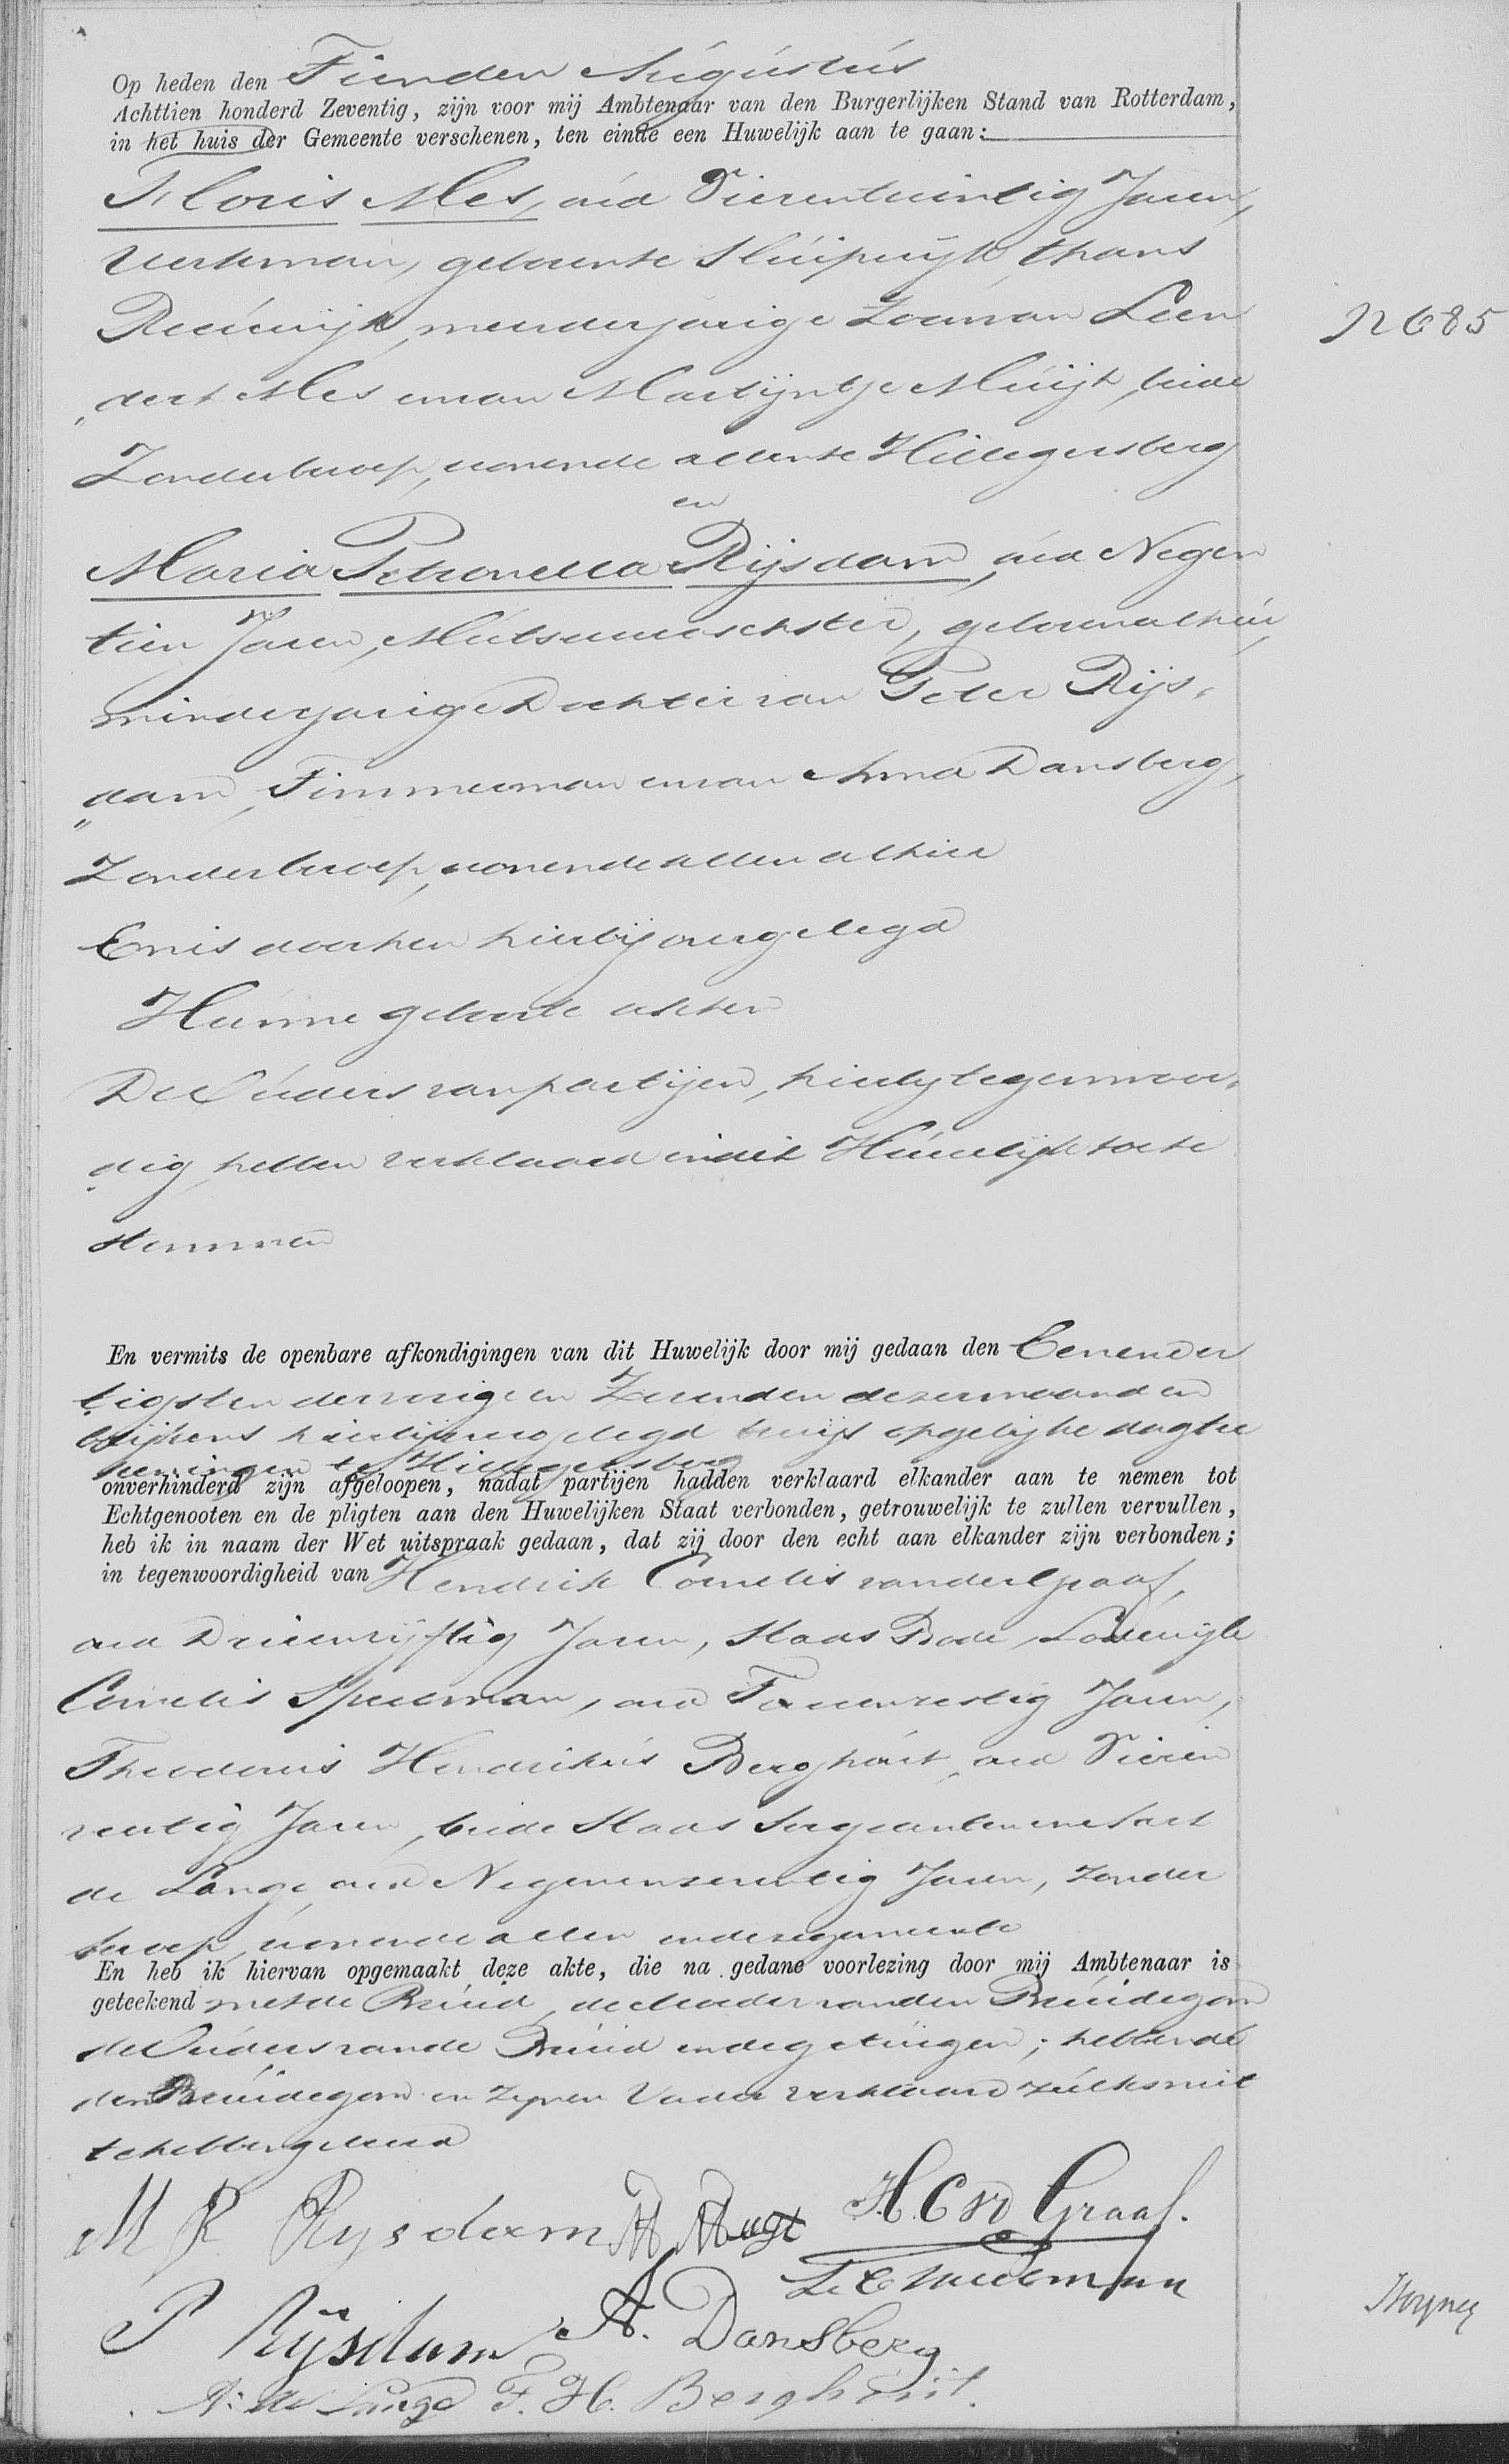 Op heden den Tienden Augustus
Achttien honderd Zeventig, zijn voor mij Ambtenaar van den Burgerlijken Stand van Rotterdam,
in het huis der Gemeente verschenen, ten einde een Huwelijk aan te gaan:
Floris Mes, oud Vierentwintig Jaren,
Werkman, geboren te Sluipwijk, thans
Reeuwijk, meerderjarige Zoon van Leen
N 685
„dert Mes en van Martijntje Muijt, beide
Zonder beroep, wonende allen te Hillegersberg
en
Maria Petronella Rijsdam, oud Negen
tien Jaren, Mutsenwaschster, geboren alhier,
minderjarige Dochter van Peter Rijs„
„dam, Timmerman en van Anna Dansberg,
Zonder beroep, wonende allen alhier
En is door hen hierbij overgelegd
Hunne geboorte akten
De Ouders van partijen, hierbij tegenwoor„
„dig hebben verklaard in dit Huwelijk toe te
stemmen
En vermits de openbare afkondigingen van dit Huwelijk door mij gedaan den Eenender
tigsten der vorige en Zevenden dezer maand en
blijkens hierbij overgelegd bewijs op gelijke dagtee
keningen te Hillegersberg
onverhinderd zijn afgeloopen, nadat partijen hadden verklaard elkander aan te nemen tot
Echtgenooten en de pligten aan den Huwelijken Staat verbonden, getrouwelijk te zullen vervullen,
heb ik in naam der Wet uitspraak gedaan, dat zij door den echt aan elkander zijn verbonden;
in tegenwoordigheid van Hendrik Cornelis van der Graaf,
oud Drieenvijftig Jaren, Stads Bode, Lodewijk
Cornelis Speelman, oud Tweeenzestig Jaren,
Theodorus Hendrikus Berghout, oud Vieren
veertig Jaren, beide Stads Sergeanten en
de Lange, oud Negenenzeventig Jaren, zonder
beroep, wonende allen in deze gemeente
En heb ik hiervan opgemaakt deze akte, die na gedane voorlezing door mij Ambtenaar is
geteekend met de Bruid, de Moeder van den Bruidegom
de Ouders van de Bruid en de getuigen; hebbende
den Bruidegom en zijnen Vader verklaard zulks niet
te hebben geleerd
M P Rysdam M Mugt H. C. vd Graaf.
L. C. Speelman
P Rijsdam A. Dansberg
A: de Lange T. H. Berghout.